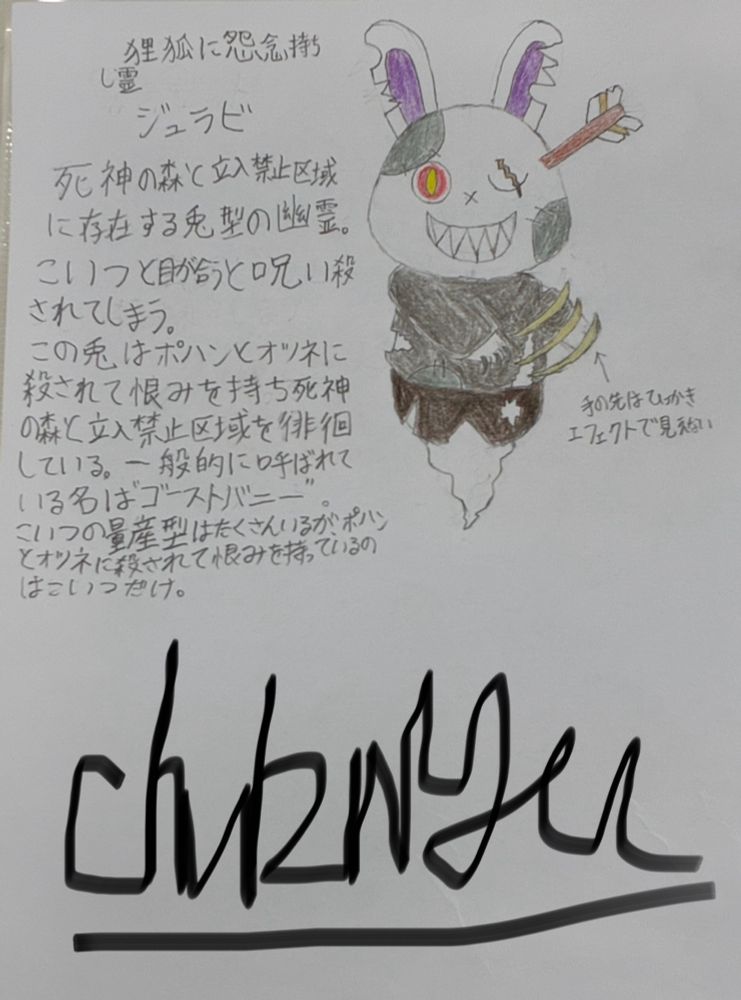 狸狐に怨念持ち
し霊
ジュラビ
死神の森と立入禁止区域
に存在する兎型の幽霊。
こいつと目が合うと呪い殺
されてしまう。
この兎はポハンとオツネに
殺されて恨みを持ち死神
の森と立入禁止区域を徘徊
している。一般的に呼ばれて
いる名は"ゴーストバニー"。
こいつの量産型はたくさんいるが、ポハン
とオツネに殺されて恨みを持っているの
はこいつだけ。
手の先はひっかき
エフェクトで見えない